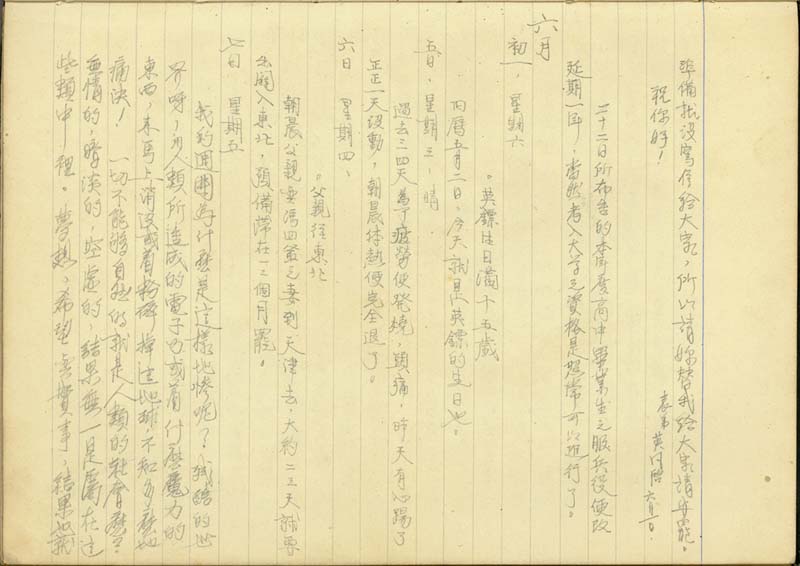 準備就沒寫信給大家，所以請妳替我給大家請安罷。
祝你好！
英同啓 六月一日
二十二日所布告的本年度高中畢業生之服兵役便改
延期一年，當然考入大学之資格是照常可以進行了。
六月
初一，星期六
。英鏢生日滿十五歲
旧曆五月二日，今天就是英鏢的生日也。
五日，星期三，晴
過去三四天為了疲勞便発燒，頭痛，昨天有心踢了
正正一天沒動，朝晨体熱便完全退了。
六日 星期四、
。父親往東北
朝晨父親要馮四爺之妻到天津去，大約二三天就要
出関入東北，預備常在三個月罷。
七日 星期五
我的周囲為什麼是這樣地慘呢？我給的世
界呀，为人類所造成的電子力或有什麼魔力的
東西，来馬上消沒或者粉碎掉這地球不知多麼地
痛快！ 一切不能夠自然的就是人類的社會麼？
無情的，暗淡的，空虛的，結果無一是屬在這
些類中裡。夢想、希望無實事，結果